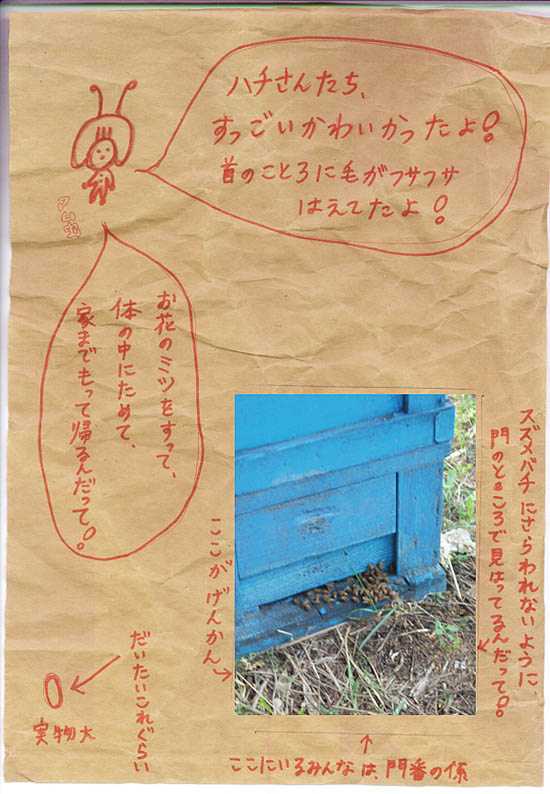 ハチさんたち、
すっごいかわいかったよ!
首のことろに毛がフサフサ
はえてたよ!
アム蛮
お花のミツをすって、
体の中にためて、
家までもって帰るんだって!
スズメバチにさらわれないように、
門のところで見はってるんだって!
ここがげんかん。
だいたいこれぐらい
実物大
ここにいるみんなは、門番の係